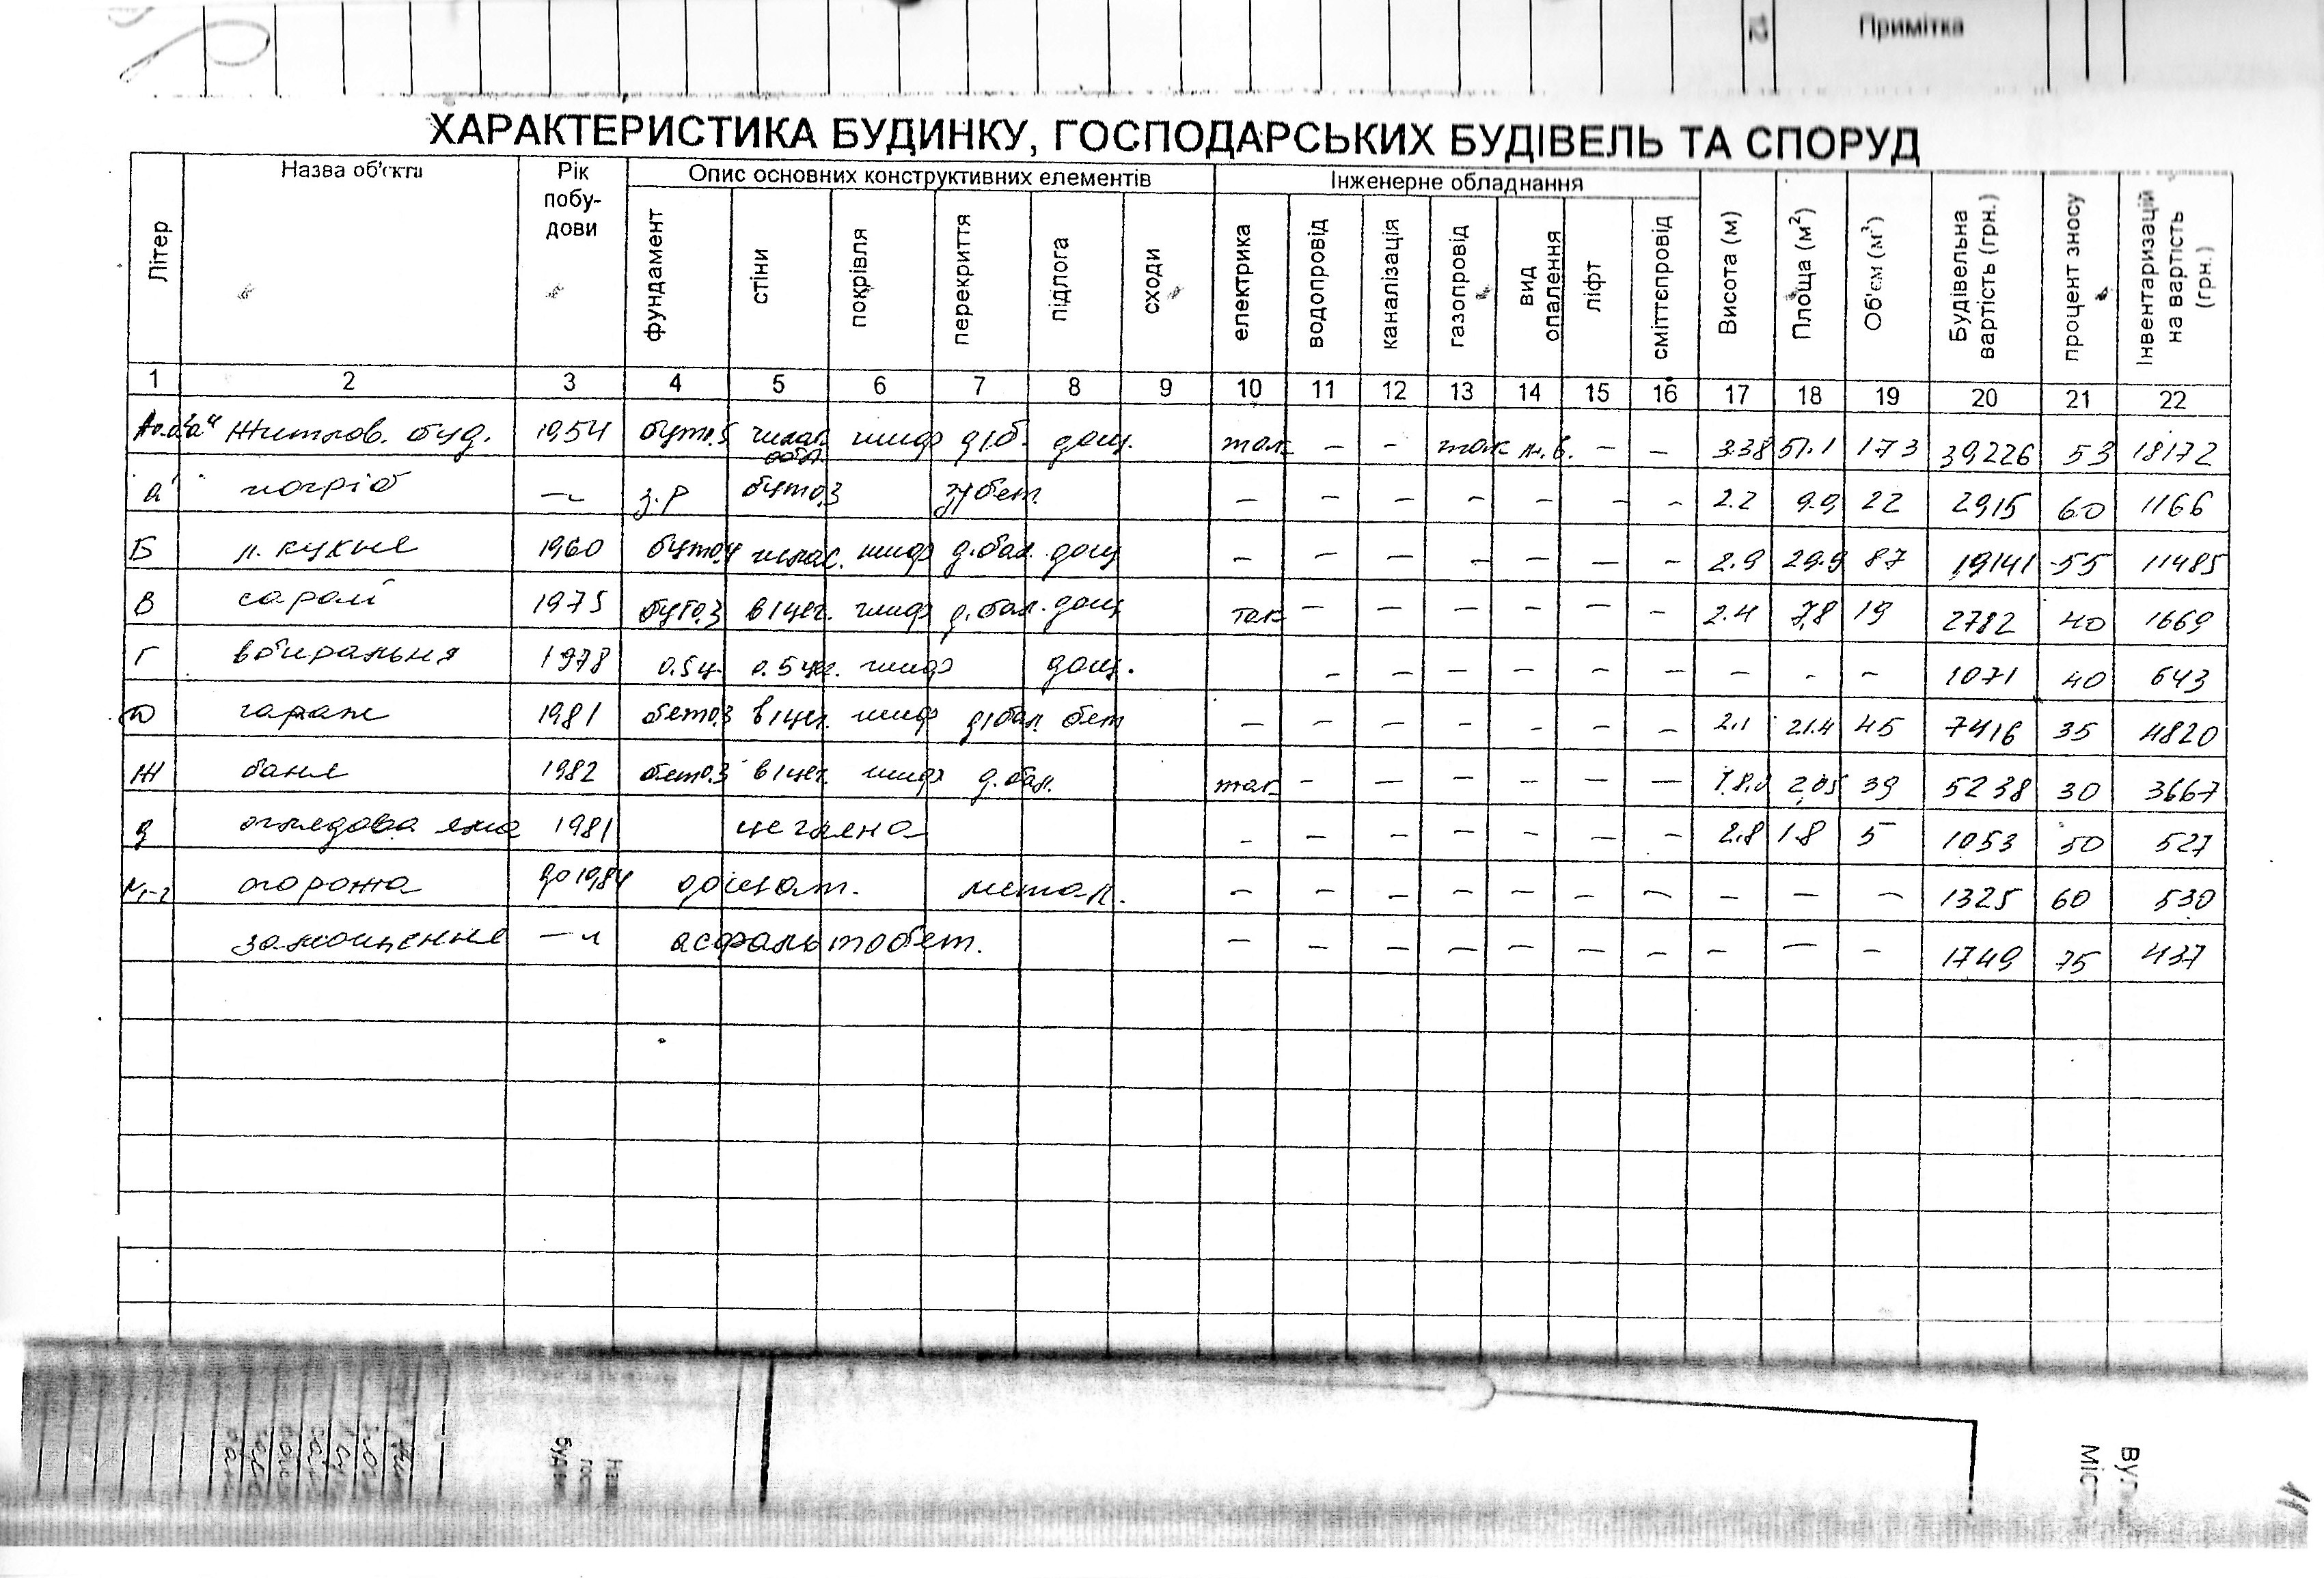 Примітка
ХАРАКТЕРИСТИКА БУДИНКУ, ГОСПОДАРСЬКИХ БУДІВЕЛЬ ТА СПОРУД
Літер Назва об'єкта Рік побу- дови Опис основних конструктивних елементів Інженерне обладнання Висота (м) Площа (м²) Об'єм (м³) Будівельна вартість (грн.) процент зносу Інвентаризацій на вартість (грн.)
фундамент стіни покрівля перекриття підлога сходи електрика водопровід каналізація газопровід вид опалення ліфт сміттєпровід
1 2 3 4 5 6 7 8 9 10 11 12 13 14 15 16 17 18 19 20 21 22
Житлов. буд. 1954 шиф дощ. так – – так п.в. – – 3.38 51.1 173 39226 53 18172
а погріб –"– з.р буто.3 з/бет. – – – – – – – 2.2 9.9 22 2915 60 1166
Б л. кухня 1960 буто.4 шлак. шиф д.бал. дощ – – – – – – – 2.9 29.9 87 19141 55 11485
В сарай 1975 буто.3 в1цег. шиф д.бал. дощ так – – – – – – 2.4 7,8 19 2782 40 1669
Г вбиральня 1978 0.5ц. 0.5цег. шиф дощ. – – – – – – – - – 1071 40 643
D гараж 1981 бето.3 в1цег. шиф д/бал. бет – – – – – – – 2.1 21.4 45 7416 35 4820
Ж баня 1982 бето.3 в1цег. шиф д.бал. так – – – – – – 39 5238 30 3667
д оглядова яма 1981 цегляна – – – – – – – 2.8 1.8 5 1053 50 527
огорожа до 1984 дощат. метал. – – – – – – – – – – 1325 60 530
замощення –"– асфальтобет. – – – – – – – – – – 1749 75 437
Вул
Міс